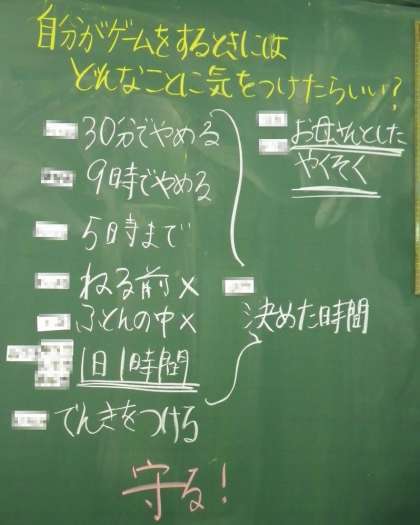 自分がゲームをするときには
どんなことに気をつけたらいい?
30分でやめる
9時でやめる
5時まで
ねる前×
ふとんの中×
1日1時間
でんきをつける
お母さんとした
やくそく
決めた時間
守る!